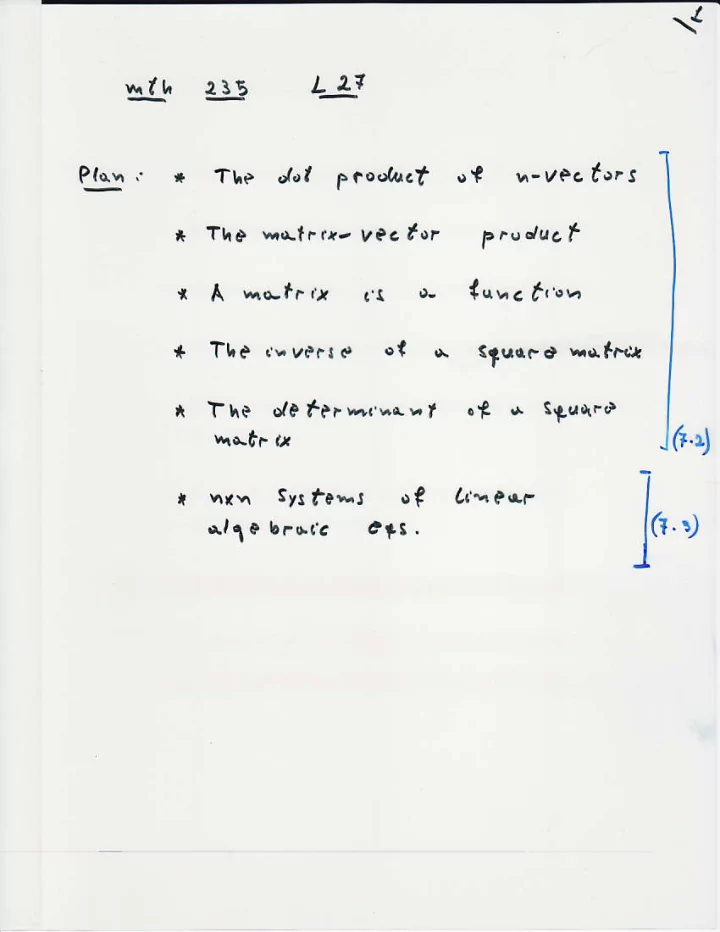 1
mth 235 L27
Plan: * The dot product of n-vectors
* The matrix-vector product
* A matrix is a function
* The inverse of a square matrix
* The determinant of a square
matrix
(7.2)
* nxn systems of linear
algebraic eqs.
(7.3)